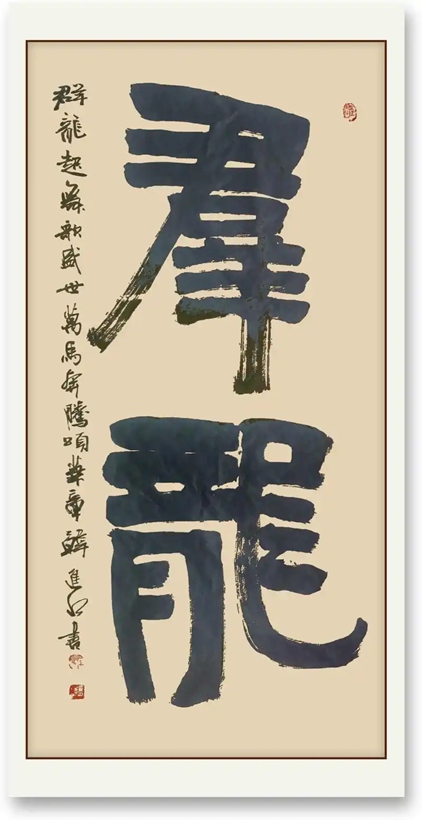 羣龍
群龍起舞歌盛世萬馬奔騰頌華章韓進書